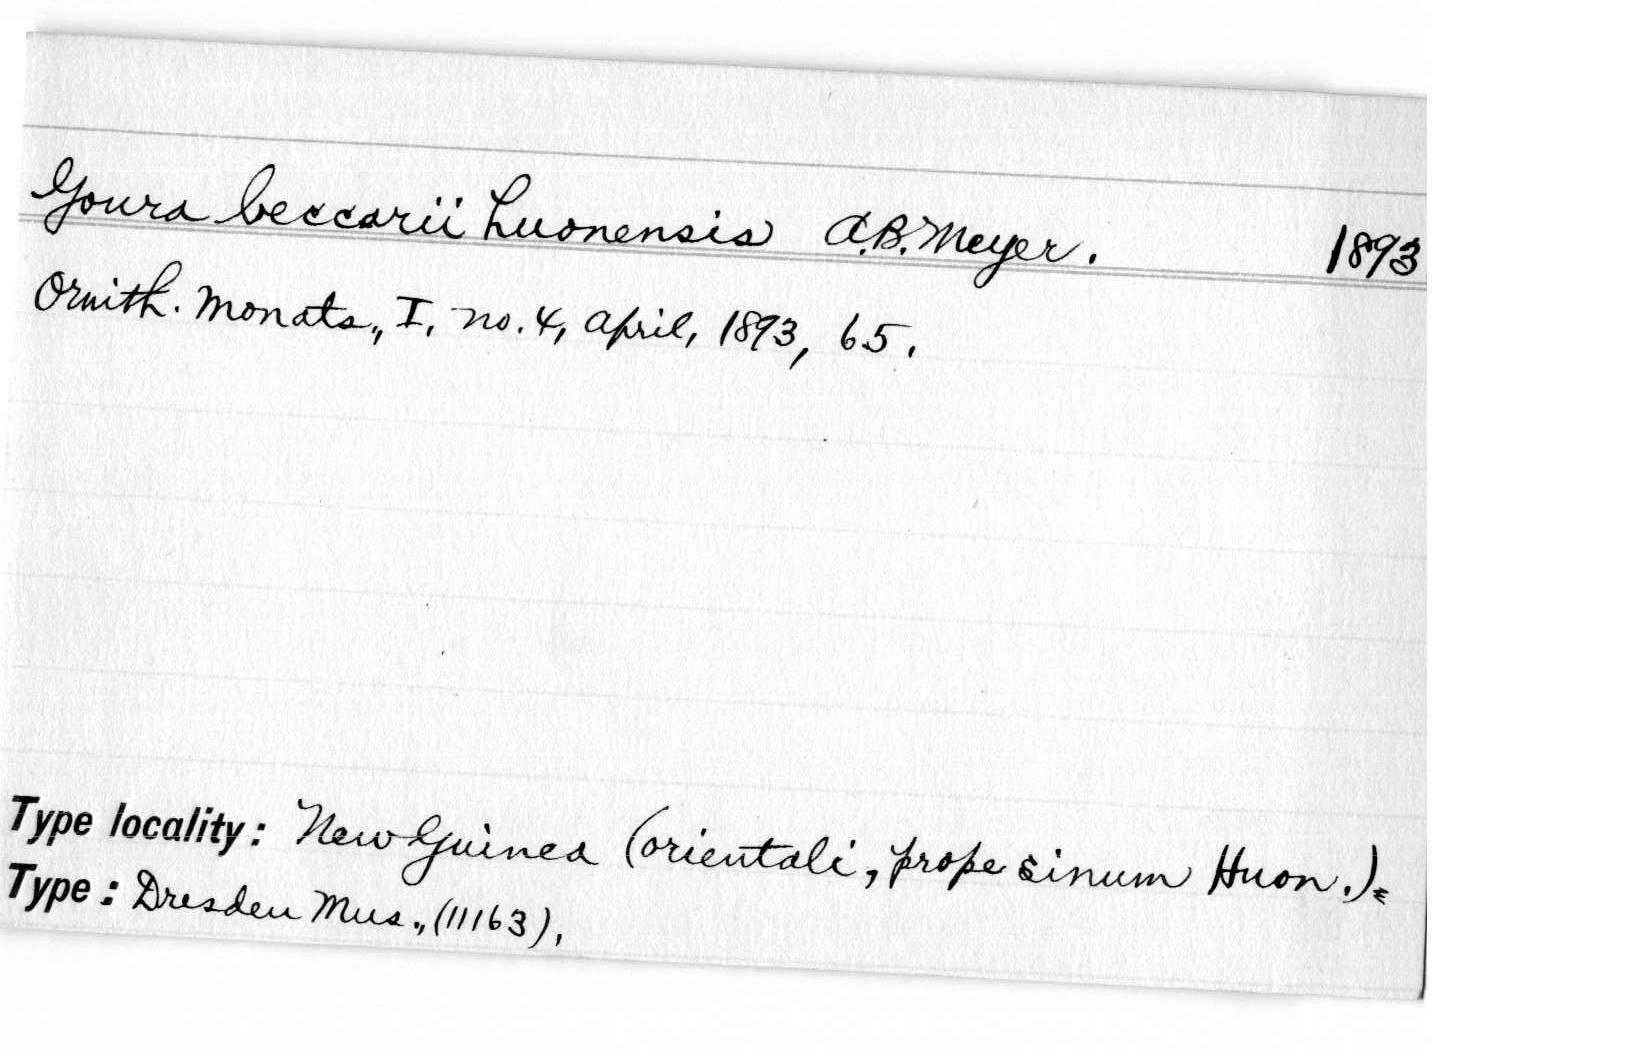 Goura beccarii huonensis A.B. Meyer. 1893
Ornith. Monats., I, no. 4, April, 1893, 65.
Type locality: New Guinea (orientali, prope sinum Huon.)=
Type: Dresden Mus., (11163).